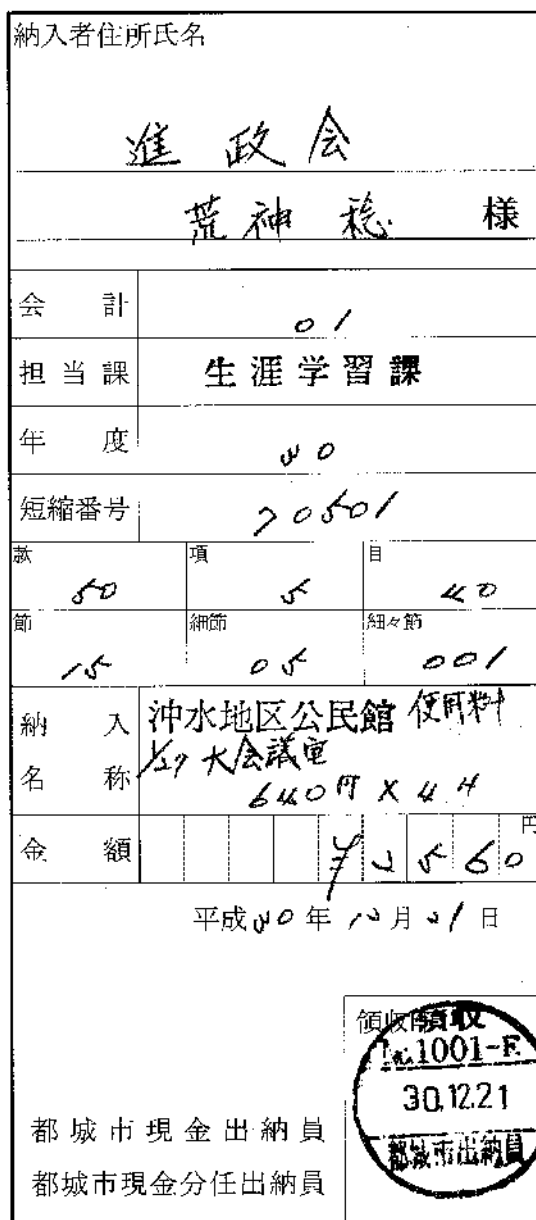 納入者住所氏名
進政会
荒神稔 様
会計 01
担当課 生涯学習課
年度 30
短縮番号 70501
款 50 項 5 目 40
節 15 細節 05 細々節 001
納入名称 沖水地区公民館 使用料
1/27 大会議室
640円×4H
金額 ¥2560円
平成30年12月21日
領収印
領収
No.1001-F
30.12.21
都城市出納員
都城市現金出納員
都城市現金分任出納員